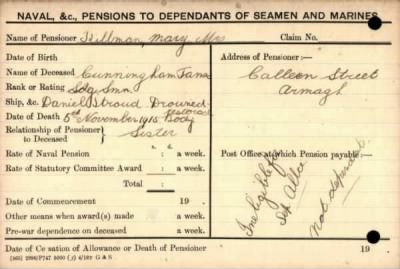 NAVAL, &c., PENSIONS TO DEPENDANTS OF SEAMEN AND MARINES
Name of Pensioner Tillman, Mary Mrs Claim No.
Date of Birth
Name of Deceased Cunningham James
Rank or Rating Sdg Smn
Ship, &c. Daniel Stroud Drowned
Date of Death 5th November 1915 Body
Relationship of Pensioner to Deceased } Sister
s. d.
Rate of Naval Pension : a week.
Rate of Statutory Committee Award : a week.
Total : a week.
Date of Commencement 19 .
Other means when award(s) made a week.
Pre-war dependence on deceased a week.
Date of Cessation of Allowance or Death of Pensioner 19
Address of Pensioner:
Calleen Street
Armagh
Post Office at which Pension payable:
Ineligible for
Sep Allce
Not dependt.